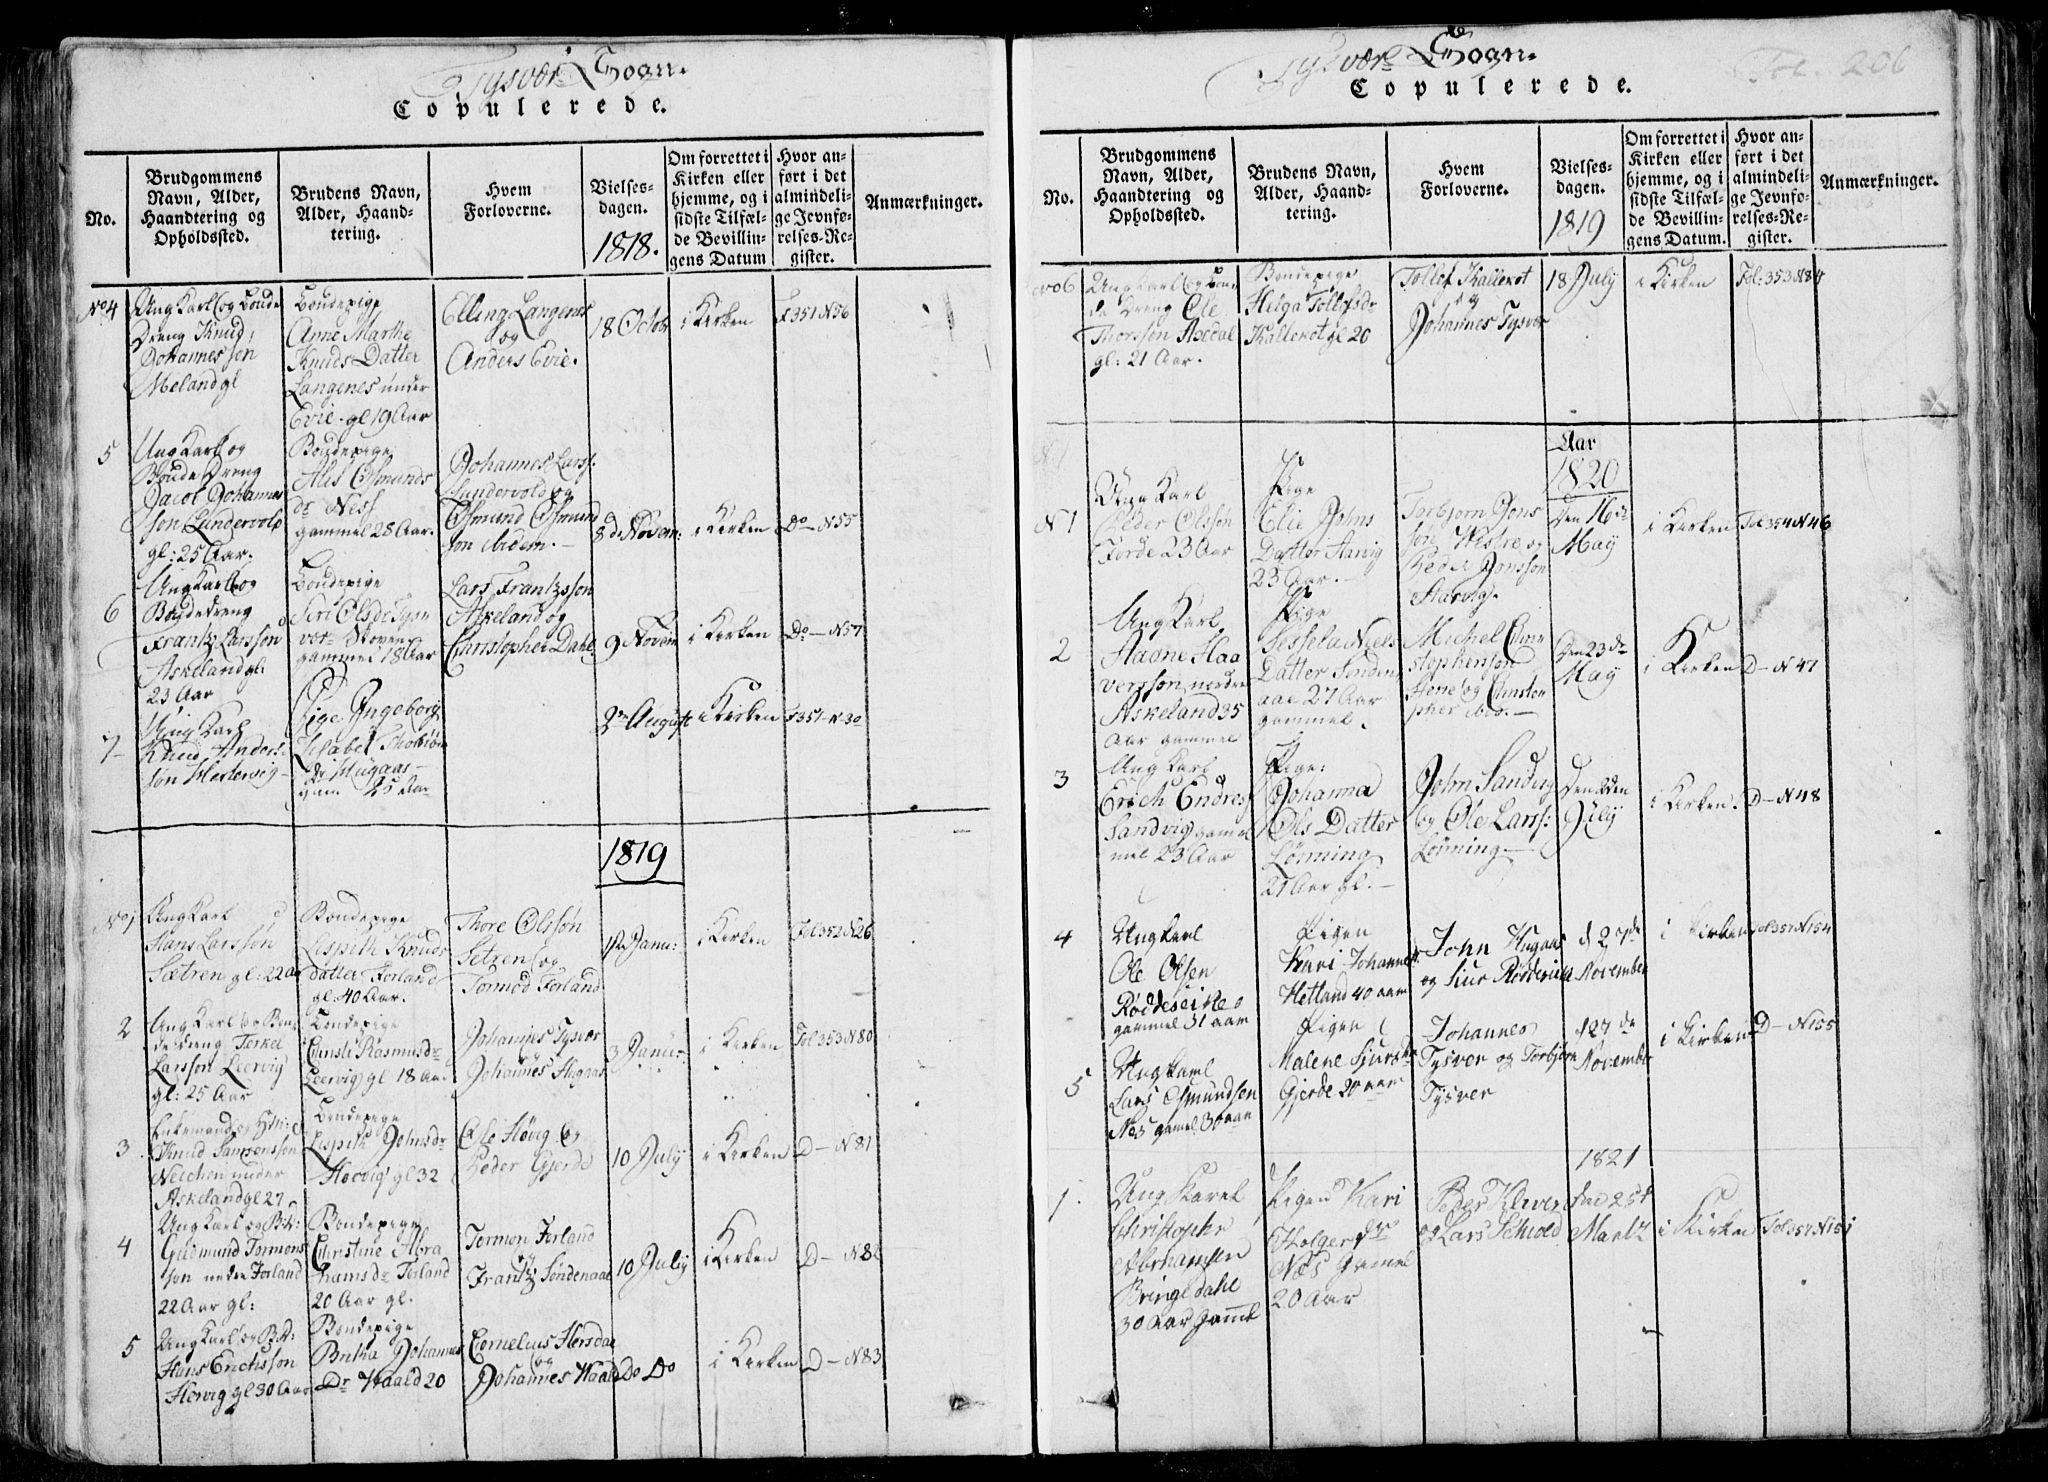 Tysvær Sogn.
Copulerede.
No.
Brudgommens
Navn, Alder,
Haandtering og
Opholdssted.
Brudens Navn,
Alder, Haand-
tering.
Hvem
Forloverne.
Vielses-
dagen.
1818.
Om forrettet i
Kirken eller
hjemme, og i
sidste Tilfæl-
de Bevillin-
gens Datum
Hvor an-
ført i det
almindeli-
ge Jevnfø-
relses-Re-
gister.
Anmærkninger.
No 4
Ung Karl og Bonde
Dreng Knud
Johannes søn
Meland gl
Bondepige
Anne Marthe
Knuds Datter
Langenes under
Evie. gl 19 Aar
Elling Langenes
og
Anders Evie.
18 Octob
i Kirken
F 351 N 56
5
Ung Karl og
Bonde Dreng
Jacob Johannes
søn Lundervold
gl: 25 Aar.
Bondepige
Alis Osmunds
dr Ness
gammel 28 Aar.
Johannes Larss.
Lundervold og
Osmund Osmund
søn ibidem.
8 d Novem:
i Kirken
Do N 55
6
Ung Karl og
Bondedreng
Frantz Larssøn
Askeland gl:
23 Aar
Bondepige
Siri Olsdr Tysvær
Skoven
gammel 18 Aar
Lars Frantzsøn
Askeland og
Christopher Dahl.
9 Novem
i Kirken
Do N 57
7
Ung Karl
Knud Anders-
søn Hertervig
Pige Ingeborg
Lisabet
dr Hugaas
gam 25 Aar
2 August
i Kirken
F 351 N 30
1819
No 1
Ung Karl
Hans Larssøn
Sætren gl: 22 Aar
Bondepige
Lispith Knuds
datter Forland
gl: 40 Aar.
Thore Olssøn
Setren og
Tormod Forland
Janu:
i Kirken
Fol 352 N 26
2
Ung Karl og Bon-
de dreng Torkel
Larssøn Leervig
gl: 25 Aar
Bondepige
Christi Rasmusdr
Leervig gl 18 Aar
Johannes Tysver
og
Johannes Hugaas
3 Janu:
i Kirken
Fol 353 N 80
3
Enkemand og
Knud Samsenssøn
Neichen under
Askeland gl 27
Bondepige
Lispith Johnsdr
Høevig gl 32
Ole Høvig og
Peder Gjerde
10 July
i Kirken
D N 81
4
Ung Karl og Bdr:
Gudmund Tormons
søn nedre Forland
22 Aar gl:
Bondepige
Christine Abra
hamsdr Forland
20 Aar gl.
Tormon Forland
og
Frantz Søndenaae
10 July
i Kirken
D N 82
5
Ung Karl og Bdr:
Hans Erichssøn
Hervig gl 30 Aar
Bondepige
Britha Johannes
Dr Waald 20
Cornelius Hersdal
og
Johannes Waald
Do Do
i Kirken
D N 83
Tysvær Sogn.
Copulerede.
Fol. 206
No.
Brudgommens
Navn, Alder,
Haandtering og
Opholdssted.
Brudens Navn,
Alder, Haand-
tering.
Hvem
Forloverne.
Vielses-
dagen.
1819
Om forrettet i
Kirken eller
hjemme, og i
sidste Tilfæl-
de Bevillin-
gens Datum.
Hvor an-
ført i det
almindeli-
ge Jevnfø-
relses-Re-
gister.
Anmærkninger.
No 6
Ung Karl og Bon
de Dreng Ole
Thorssøn Asedal
gl: 21 Aar.
Bondepige
Helga Tollefsdr
Kallekot gl 20
Tollef Kallekot
og
Johannes Tysvær
18 July
i Kirken
Fol: 353 N 84
Aar
1820
N 1
Ung Karl
Peder Olssøn
Førde 23 Aar
Pige
Elie Johns
Datter Aarvig
23 Aar.
Torbjørn Jons
søn Westre og
Peder Jonssøn
Aarvig.
Den 16de
May
i Kirken
Fol 354 N 46
2
Ung Karl
Haaver
Haaverssøn nordre
Askeland 35
Aar gammel
Pige
Niels
Datter Sønden
aae 27 Aar
gammel.
Michel Chri
stophersøn
og Christo
pher ibid.
Den 23de
May
i Kirken
D N 47
3
Ung Karl
Erich Endres
Sandvig gam
mel 23 Aar
Pige:
Johanna
Ols Datter
Lønning
21 Aar gl.
John Sandvig
og Ole Larss:
Lønning
Den 2den
July
i Kirken.
D N 48
4
Ungkarl
Ole Olsen
Røddeseike
gammel 31 aar
Pigen
Kari Johannesdr
Hetland 40 aar
John Hugaas
og Siur Røddeseike
d 27de
November
i Kirken
Fol 357 N 154
5
Ungkarl
Lars Osmundsen
Nes gamel 30 aar
Pigen
Malene Siursdr
Gjerde 20 aar
Johannes
Tysver og Torbjørn
Tysver
d 27de
November
i Kirken
D N 155
1821
1.
Ung Karel
Christopher
Abrhamsen
Bringedahl
30 Aar Gaml
Pigen Kari
Holgersdr
Næs Gamel
20 Aar
Peder Klever
og Lars Schiold
Den 25d
Martz
i Kirken
Fol 357 N 151